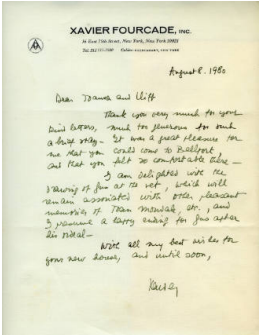 XAVIER FOURCADE, INC.
36 East 75th Street, New York, New York 10021
August 8, 1980
Dear and
Thank you very much for your
kind letters, much too generous for such
a brief stay. It was a great pleasure for
me that you could come to Bellport
and that you felt so comfortable there —
I am delighted with the
drawing of Gus at the vet, which will
remain associated with other pleasant
memories of , etc., and
I presume a happy ending for Gus after
his ordeal —
With all my best wishes for
your new house, and until soon,
Xavier